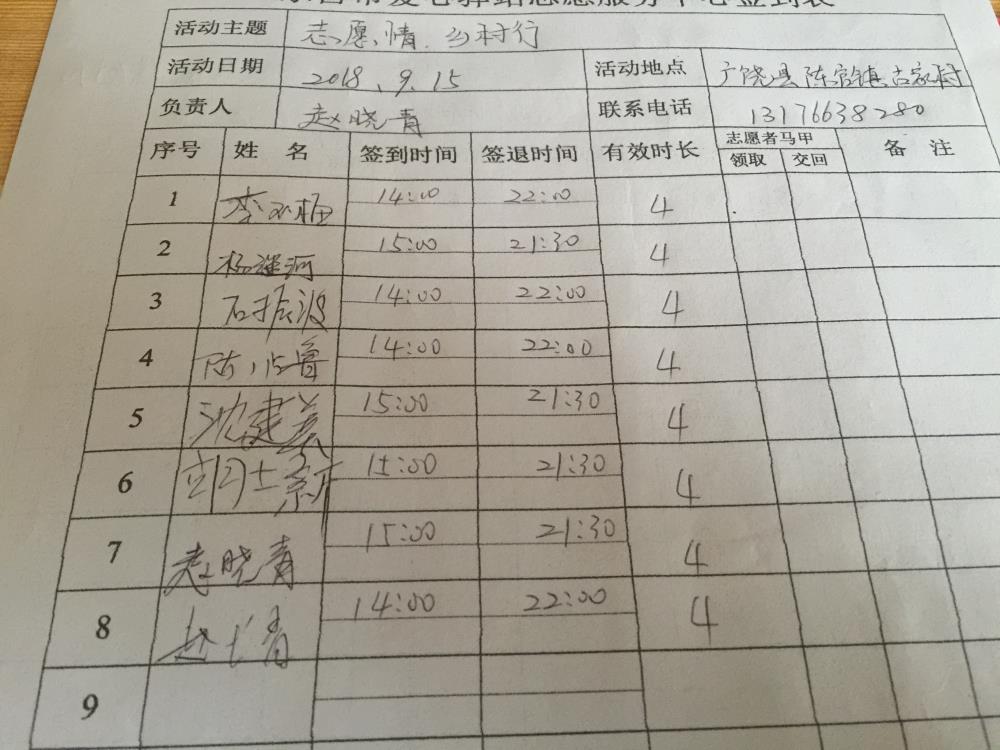 爱心驿站志愿服务中心签到表
活动主题 志愿情.乡村行
活动日期 2018.9.15 活动地点 广饶县陈官镇古家村
负责人 赵晓青 联系电话 13176638280
序号 姓名 签到时间 签退时间 有效时长 志愿者马甲 领取 交回 备注
1 14:00 22:00 4
2 15:00 21:30 4
3 石振波 14:00 22:00 4
4 14:00 22:00 4
5 沈建美 15:00 21:30 4
6 15:00 21:30 4
7 赵晓青 15:00 21:30 4
8 14:00 22:00 4
9